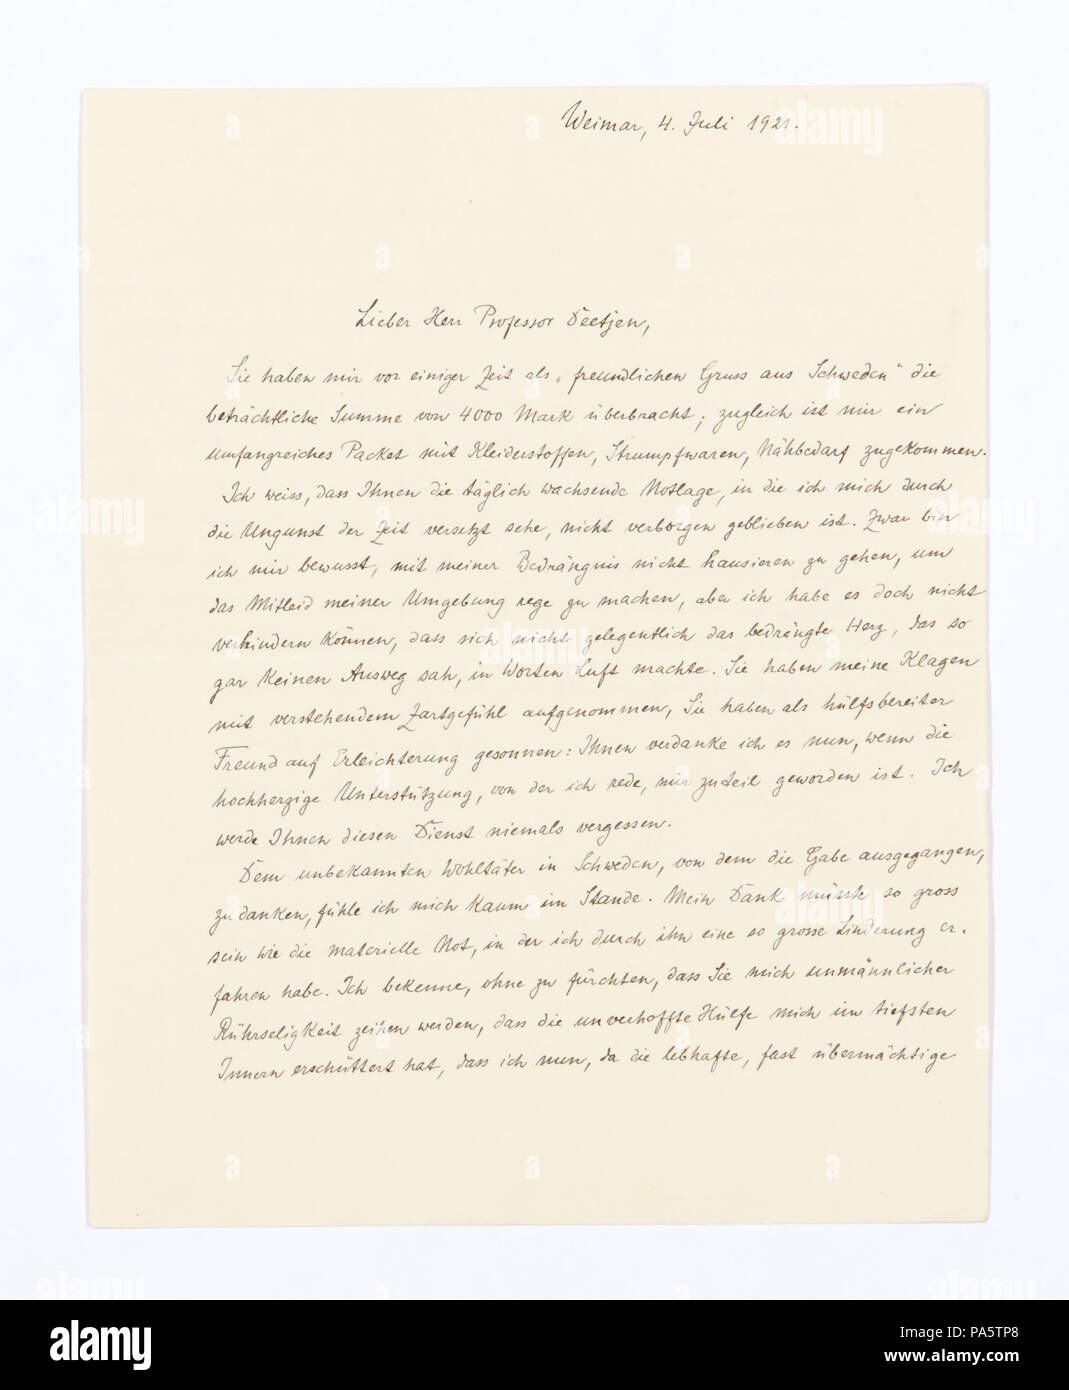 Weimar, 4. Juli 1921.
Lieber Herr Professor Deetjen,
Sie haben mir vor einiger Zeit als „freundlichen Gruss aus Schweden“ die
beträchtliche Summe von 4000 Mark überbracht; zugleich ist mir ein
umfangreiches Packet mit Kleiderstoffen, Strumpfwaren, Nähbedarf zugekommen.
Ich weiss, dass Ihnen die täglich wachsende Notlage, in die ich mich durch
die Ungunst der Zeit versetzt sehe, nicht verborgen geblieben ist. Zwar bin
ich mir bewusst, mit meiner Bedrängnis nicht hausieren zu gehen, um
das Mitleid meiner Umgebung rege zu machen, aber ich habe es doch nicht
verhindern können, dass sich nicht gelegentlich das bedrängte Herz, das so
gar keinen Ausweg sah, in Worten Luft machte. Sie haben meine Klagen
mit verstehendem Zartgefühl aufgenommen, Sie haben als hülfsbereiter
Freund auf Erleichterung gesonnen: Ihnen verdanke ich es nun, wenn die
hochherzige Unterstützung, von der ich rede, mir zuteil geworden ist. Ich
werde Ihnen diesen Dienst niemals vergessen.
Dem unbekannten Wohltäter in Schweden, von dem die Gabe ausgegangen,
zu danken, fühle ich mich kaum im Stande. Mein Dank müsste so gross
sein wie die materielle Not, in der ich durch ihn eine so grosse Linderung er-
fahren habe. Ich bekenne, ohne zu fürchten, dass Sie mich unmännlicher
Rührseligkeit zeihen werden, dass die unverhoffte Hülfe mich im tiefsten
Innern erschüttert hat, dass ich nun, da die lebhafte, fast übermächtige
alamy
PA5TP8
www.alamy.com